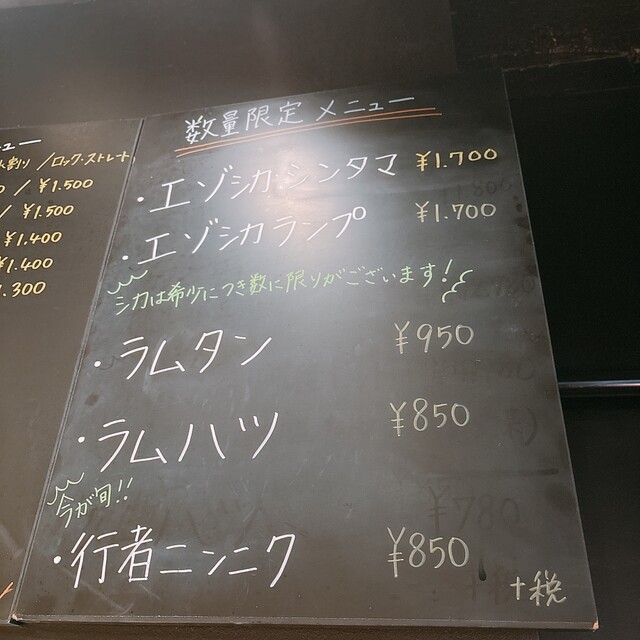 ュー
水割り/ロック・ストレート
/¥1.500
/¥1.500
¥1.400
¥1.400
1.300
数量限定メニュー
・エゾシカ・シンタマ ¥1.700
・エゾシカランプ ¥1.700
シカは希少につき数に限りがございます!
・ラムタン ¥950
・ラムハツ ¥850
今が旬!!
・行者ニンニク ¥850
+税